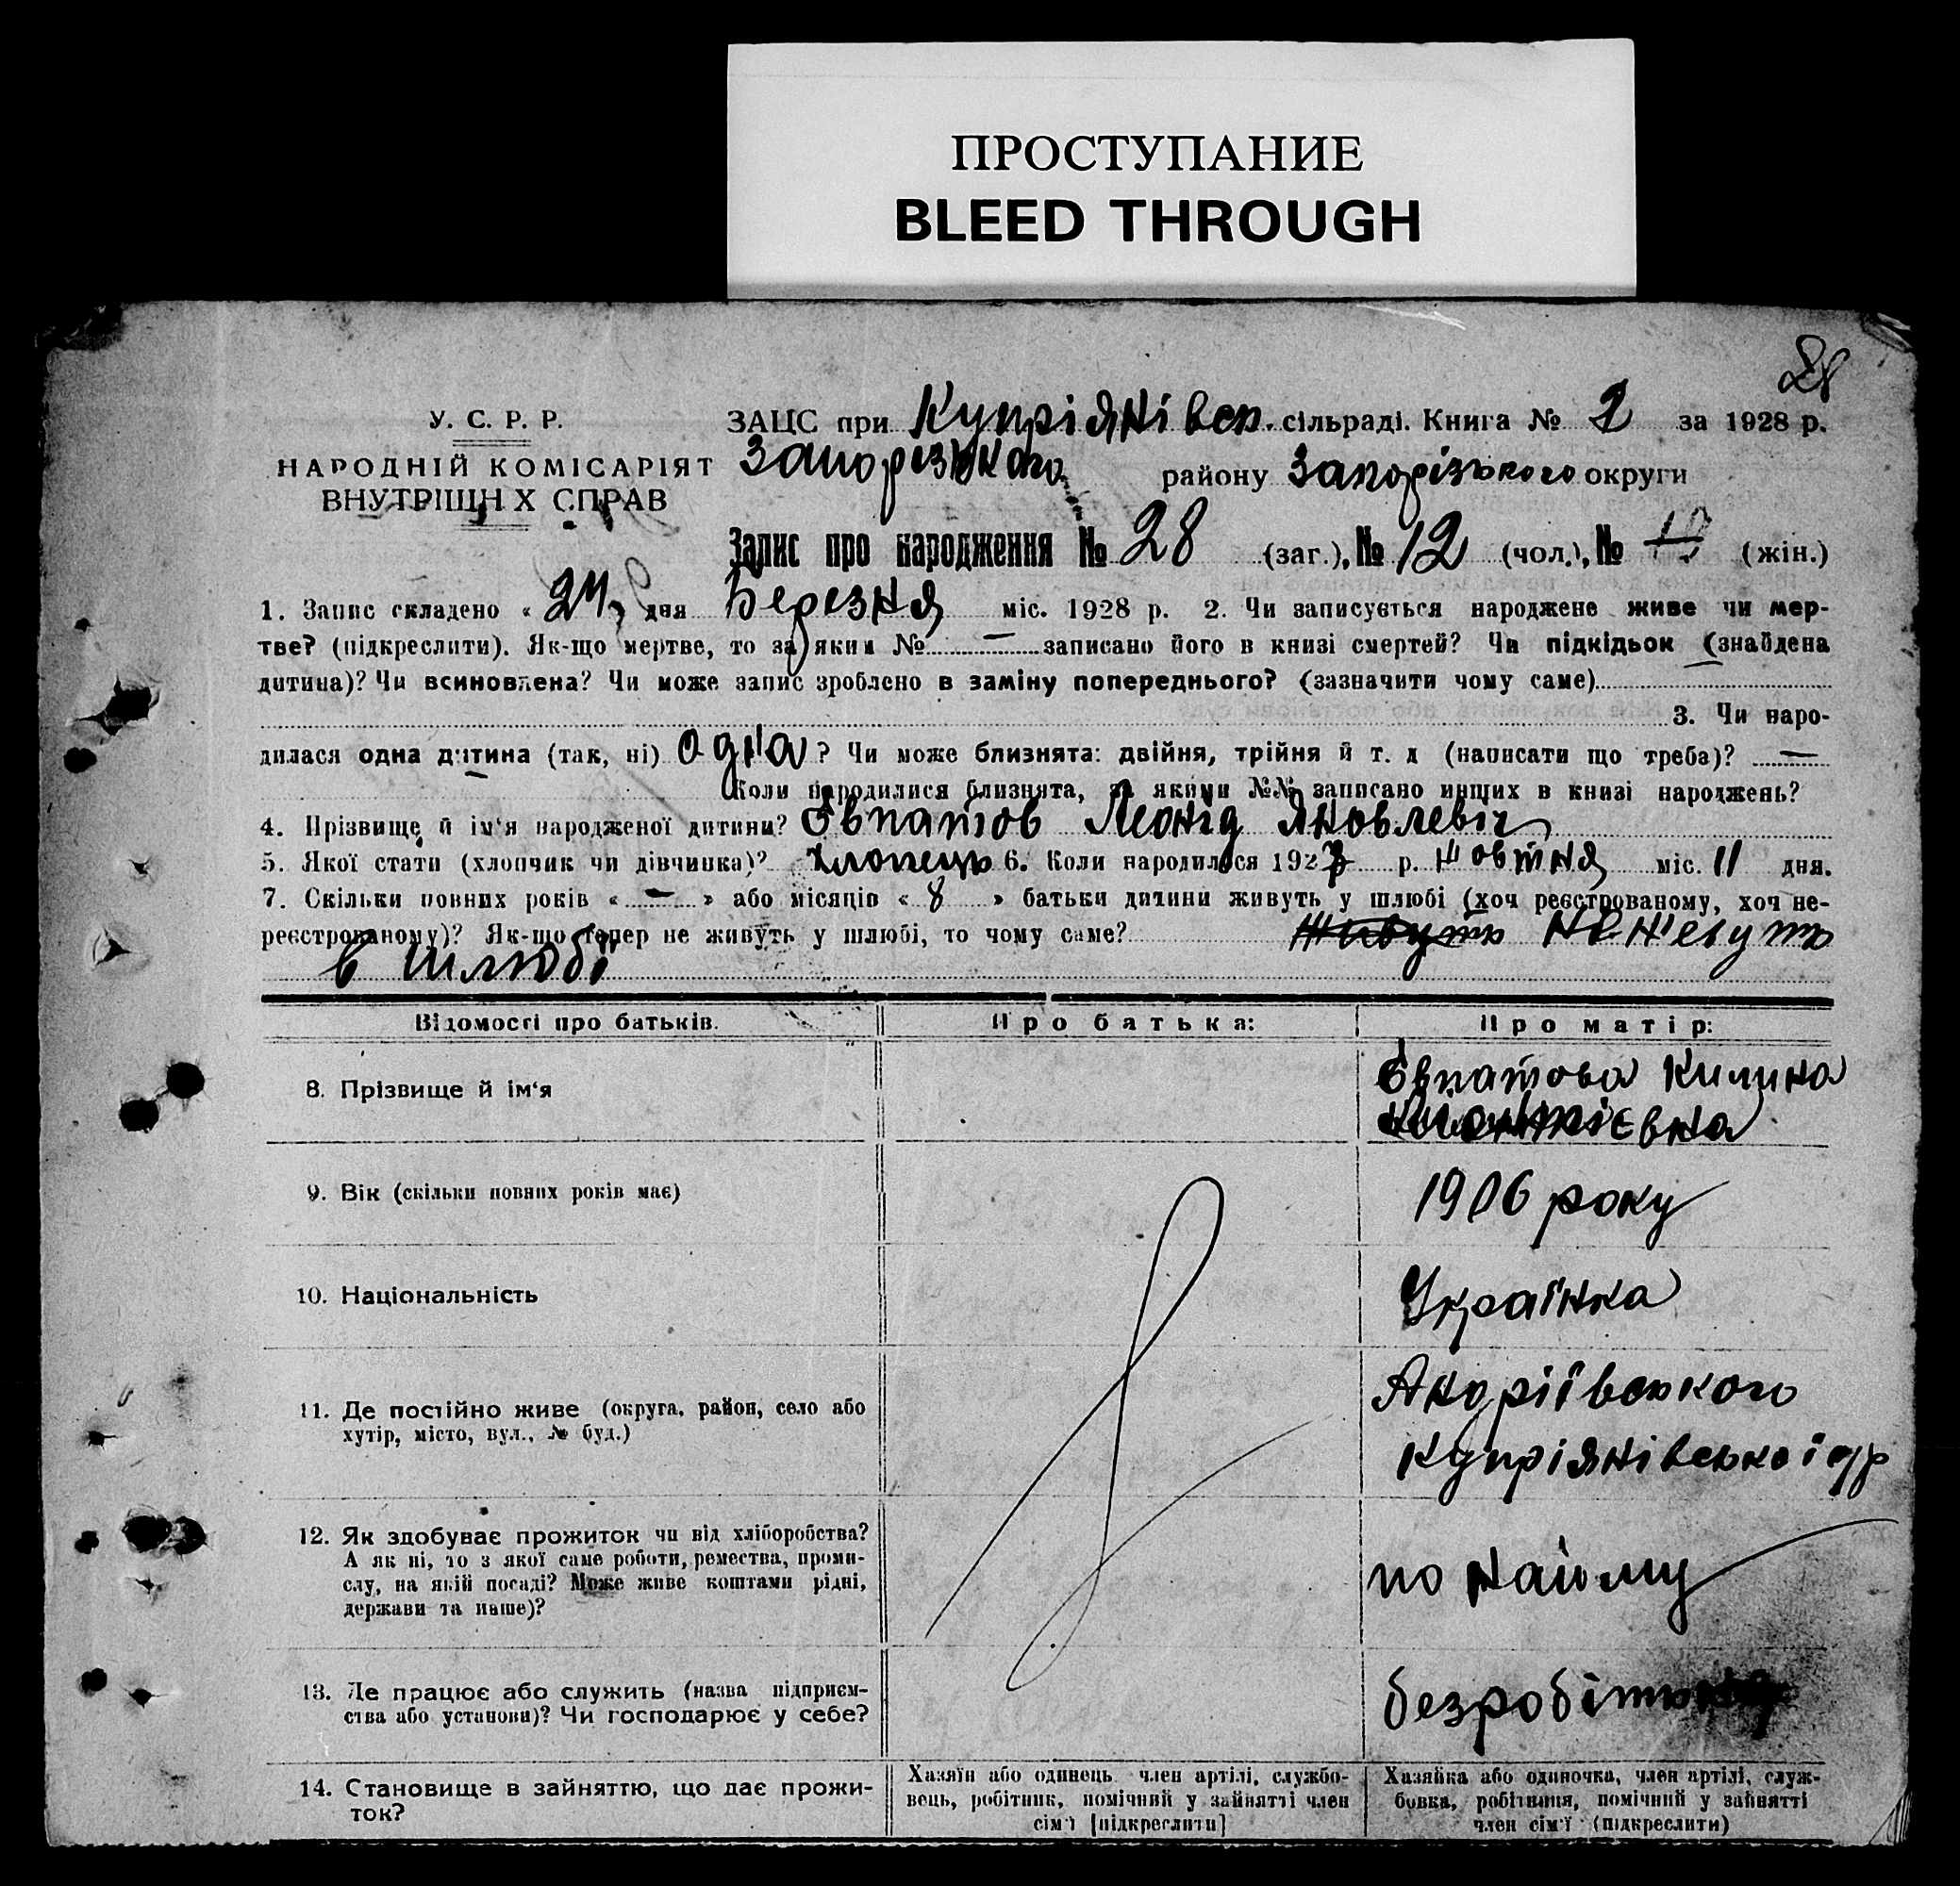 ПРОСТУПАНИЕ
BLEED THROUGH
28
У. С. Р. Р.
НАРОДНІЙ КОМІСАРІЯТ
ВНУТРІШН Х СПРАВ
ЗАЦС при Купріянівск. сільраді. Книга № 2 за 1928 р.
Запорізького району Запорізького округи
Запис про народження № 28 (заг.), № 12 (чол.), № (жін.)
1. Запис складено « 24 » дня Березня міс. 1928 р. 2. Чи записується народжене живе чи мер-
тве? (підкреслити). Як-що мертве, то за яким № — записано його в книзі смертей? Чи підкідьок (знайдена
дитина)? Чи всиновлена? Чи може запис зроблено в заміну попереднього? (зазначити чому саме)
3. Чи наро-
дилася одна дитина (так, ні) одна? Чи може близнята: двійня, трійня й т. д (написати що треба)? —
Коли народилися близнята, за якими №№ записано инших в книзі народжень?
4. Прізвище й ім'я народженої дитини? Євпатов Леонід Яковлевіч
5. Якої стати (хлопчик чи дівчинка)? хлопець 6. Коли народилося 1927 р. Жовтня міс. 11 дня.
7. Скільки повних років « — » або місяців « 8 » батьки дитини живуть у шлюбі (хоч реєстрованому, хоч не-
реєстрованому)? Як-що тепер не живуть у шлюбі, то чому саме? Живуть не живуть
в шлюбі
Відомості про батьків.
Про батька:
Про матір:
8. Прізвище й ім'я
Євпатова Килина
9. Вік (скільки повних років має)
1906 року
10. Національність
Українка
11. Де постійно живе (округа, район, село або
хутір, місто, вул., № буд.)
Андріївського
Купріянівської
12. Як здобуває прожиток чи від хліборобства?
А як ні, то з якої саме роботи, ремества, проми-
слу, на якій посаді? Може живе коштами рідні,
держави та инше)?
по найму
13. Де працює або служить (назва підприєм-
ства або установи)? Чи господарює у себе?
14. Становище в зайняттю, що дає прожи-
ток?
Хазяїн або одинець член артілі, службо-
вець, робітник, помічний у зайнятті член
сім'ї [підкреслити]
Хазяйка або одиночка, член артілі, служ-
бовка, робітниця, помічний у зайнятті
член сім'ї (підкреслити)